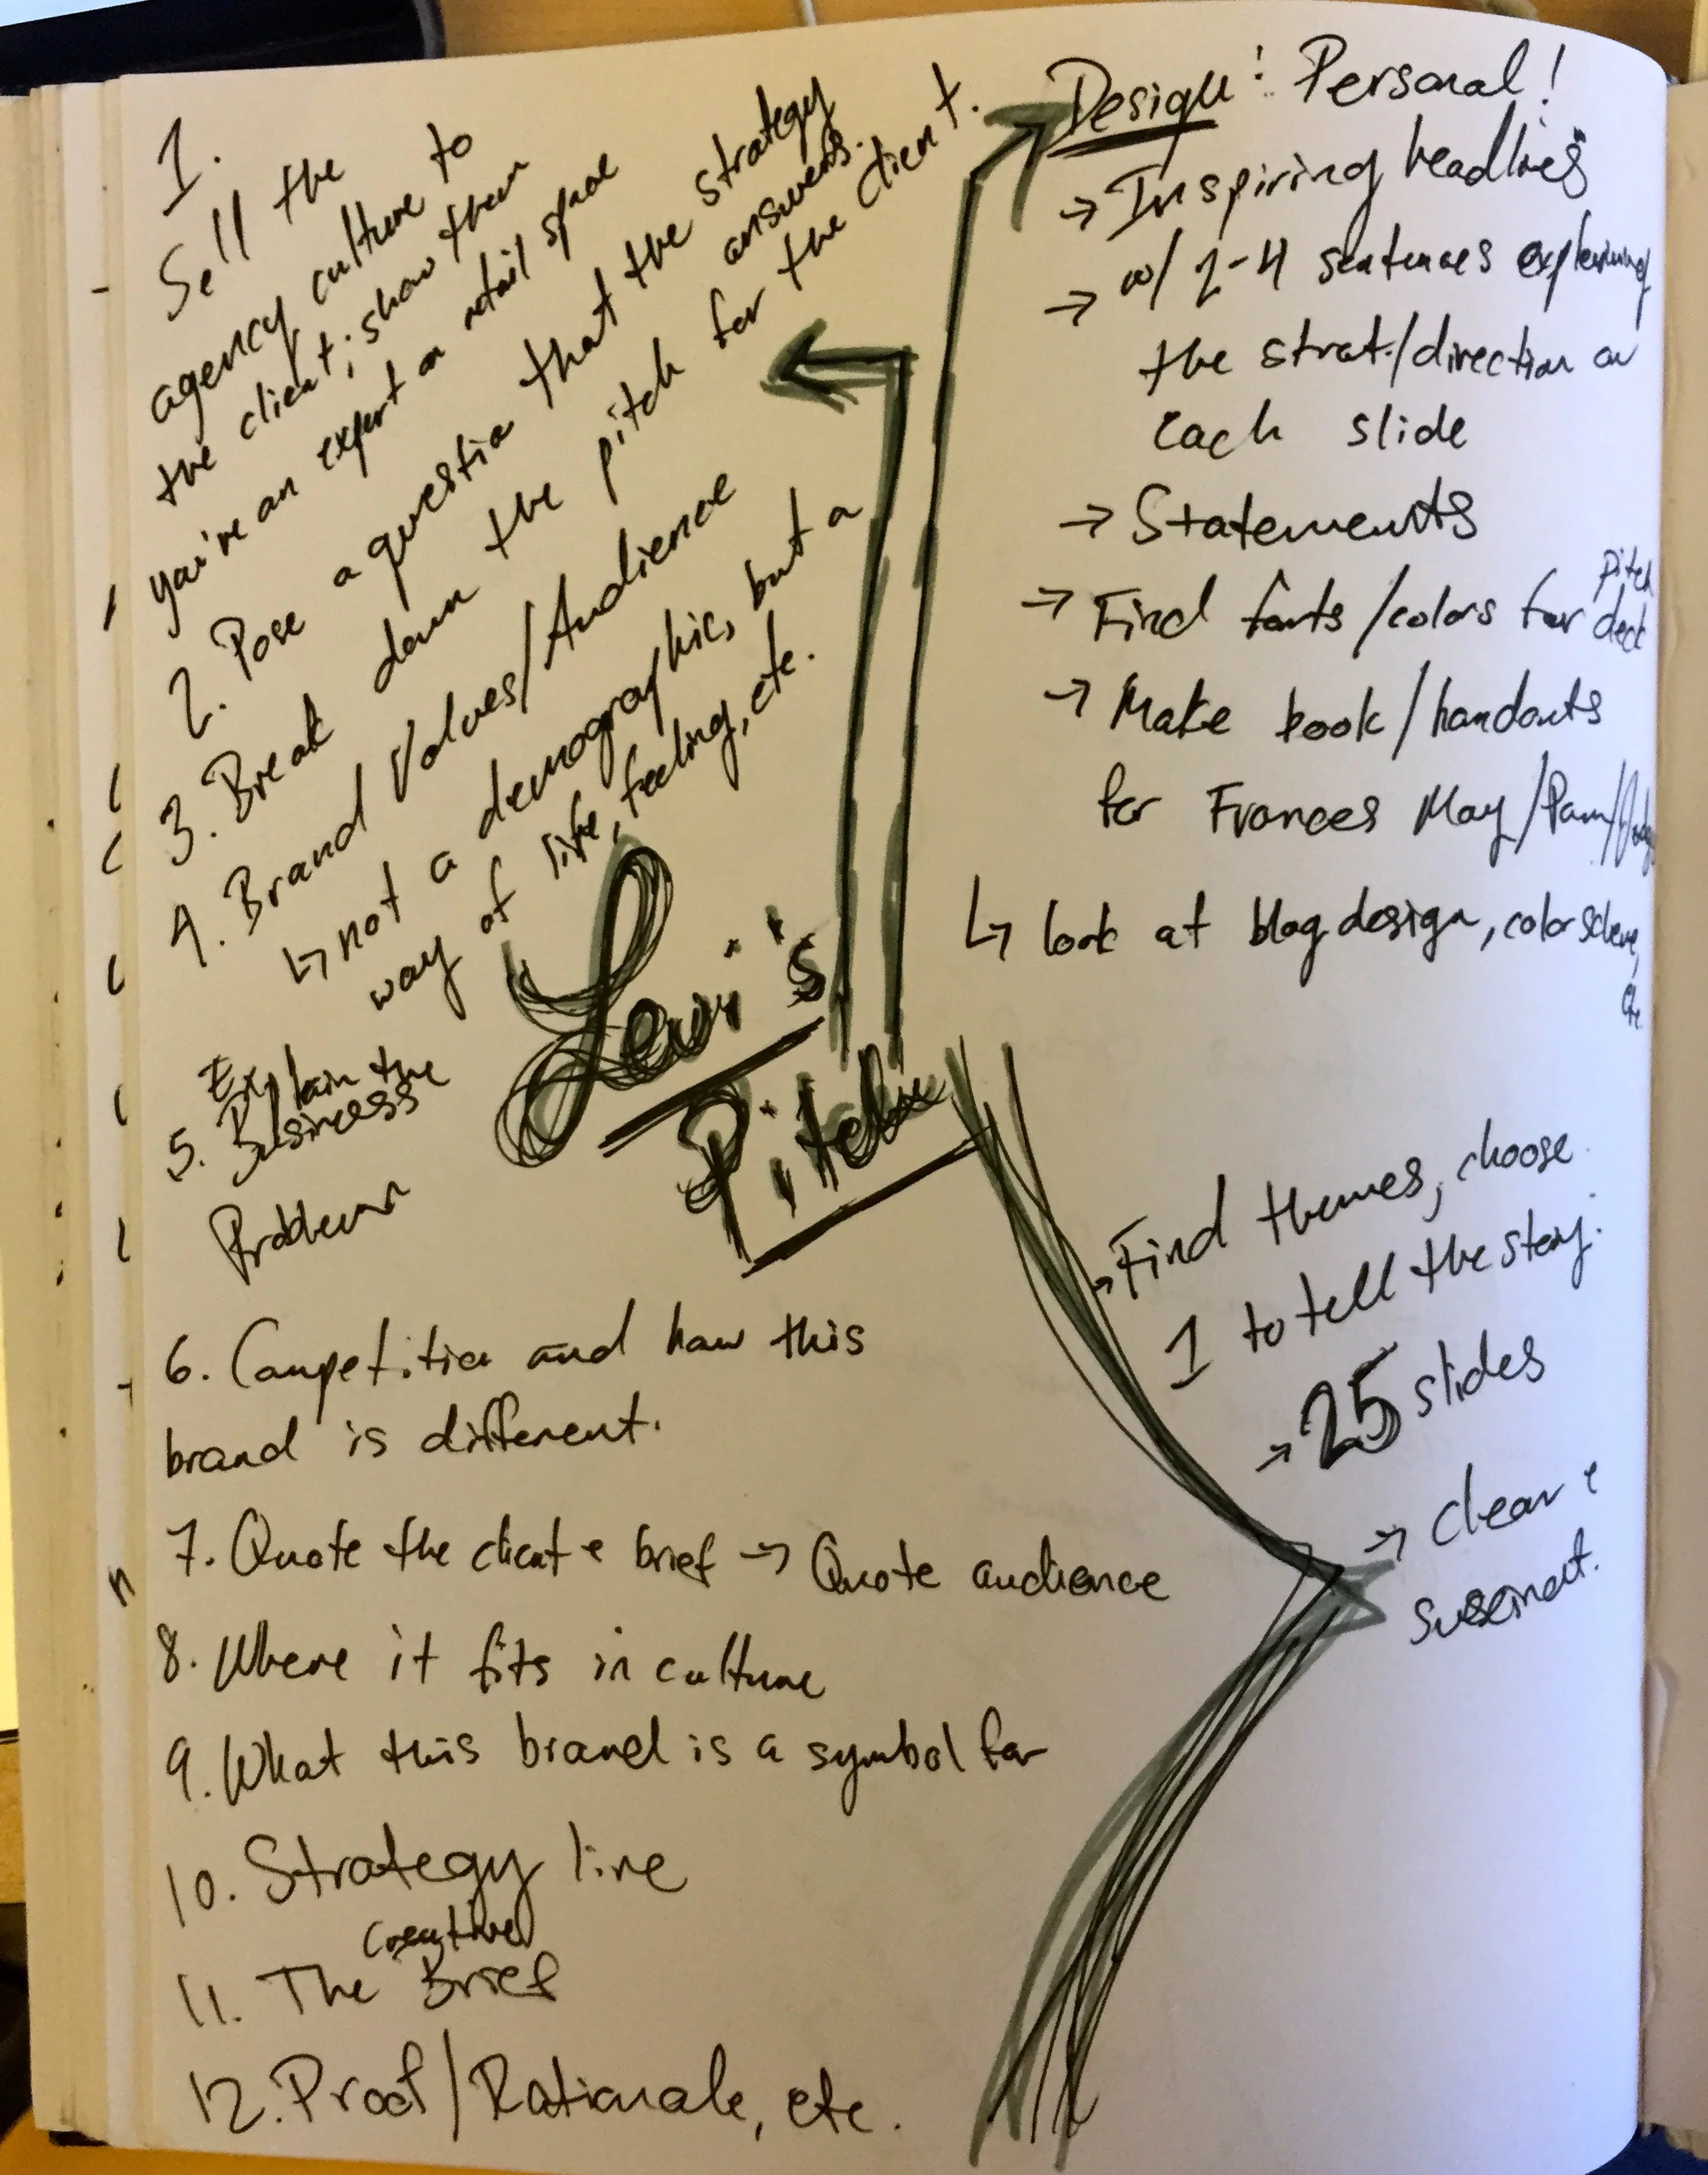 1.
Sell the
agency culture to
the client; show them
you're an expert on retail space
2. Pose a question that the strategy
answers.
3. Break down the pitch for the client.
4. Brand Values/Audience
↳ not a demographic, but a
way of life, feeling, etc.
Explain the
5. Business
Problem
6. Competition and how this
brand is different.
7. Quote the client & brief → Quote audience
8. Where it fits in culture
9. What this brand is a symbol for
10. Strategy line
Creative
11. The Brief
12. Proof/Rationale, etc.
Levi's
Pitch
Design: Personal!
→ Inspiring headlines
→ w/ 2-4 sentences explaining
the strat./direction on
each slide
→ Statements
Pitch
→ Find fonts/colors for deck
→ Make book/handouts
for Frances May/Pam/
↳ look at blog design, color scheme,
etc.
→ Find themes, choose
1 to tell the story.
→ 25 slides
→ Clear &